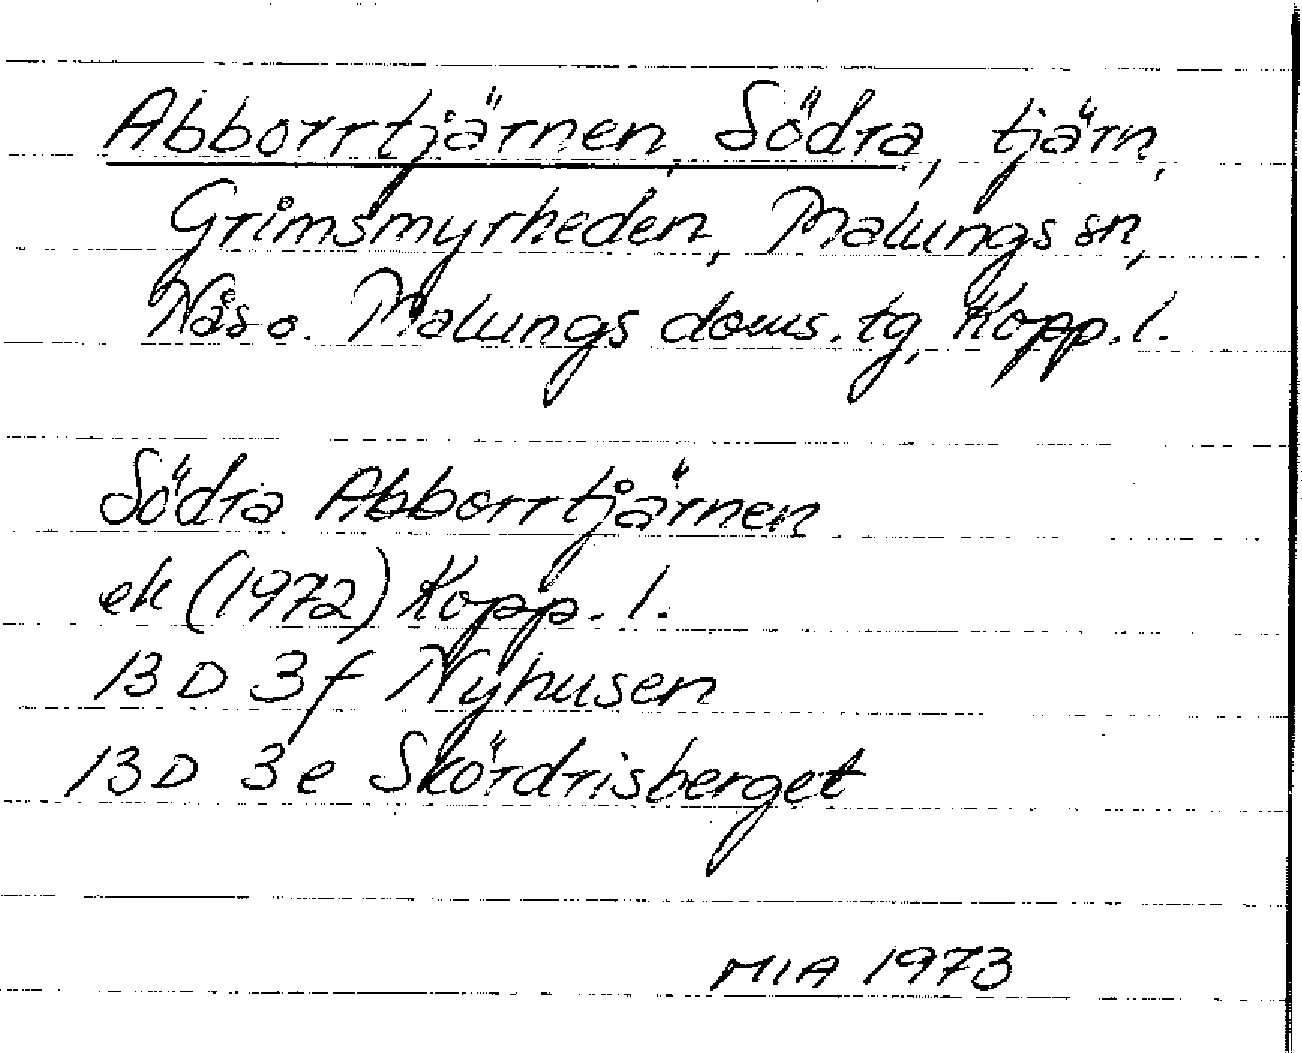 Abborrtjärnen, Södra, tjärn,
Grimsmyrheden, Malungs sn,
Nås o. Malungs doms. tg, Kopp. l.
Södra Abborrtjärnen
ek (1972) Kopp. l.
13 D 3f Nyhusen
13 D 3e Skördrisberget
MIA 1973